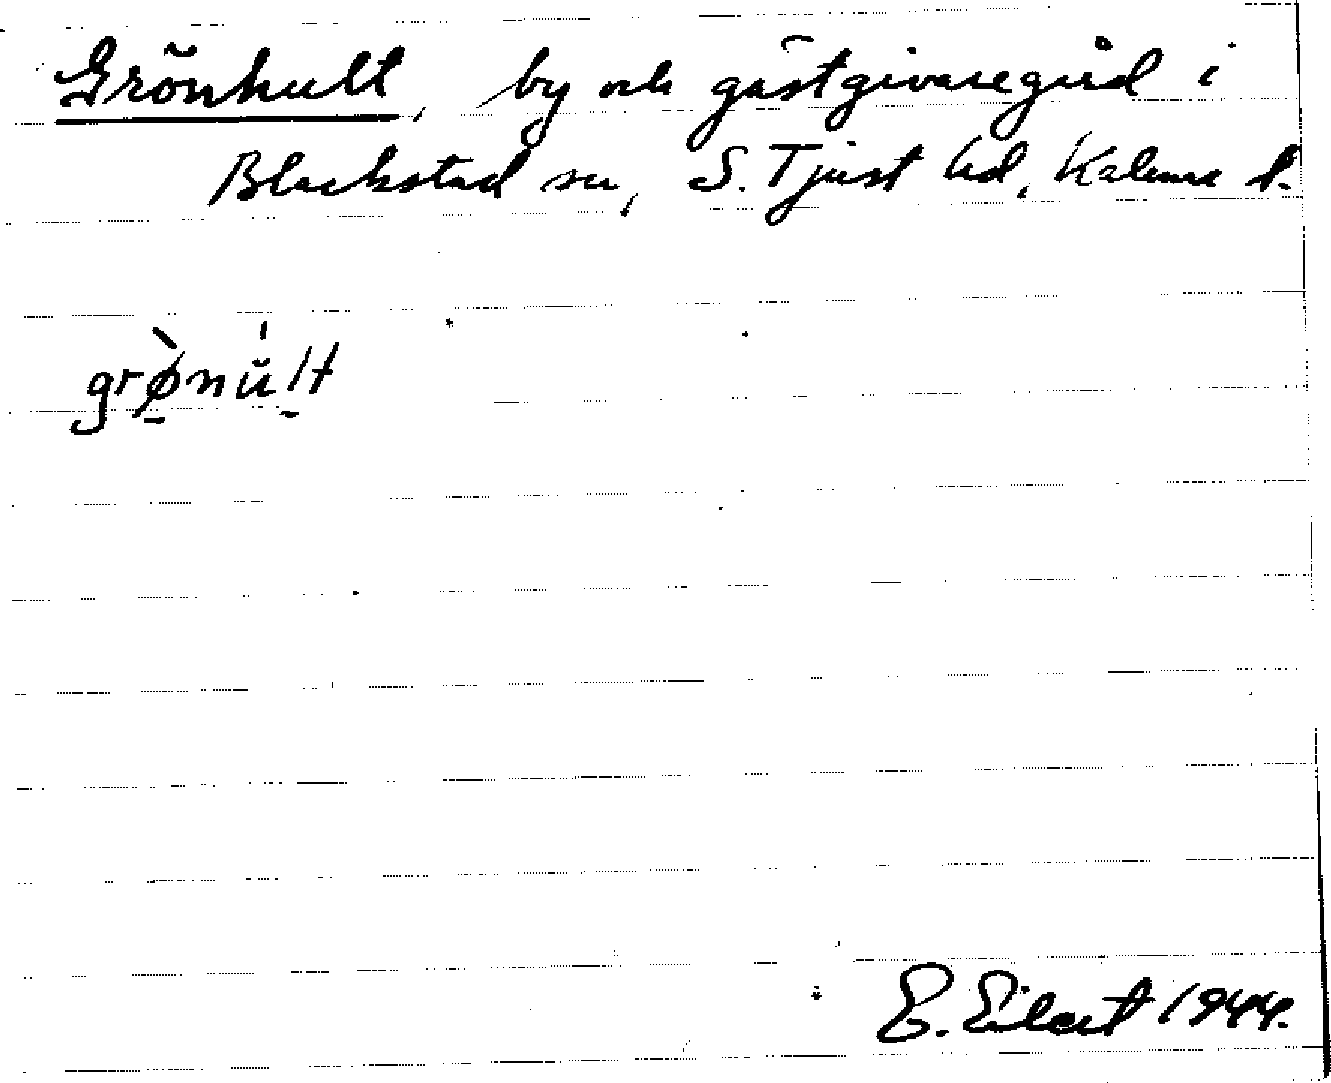 Grönhult, by och gästgivaregård i
Blackstad sn, S. Tjust hd, Kalmar l.
grø̀nŭlt
E. Eilert 1944.